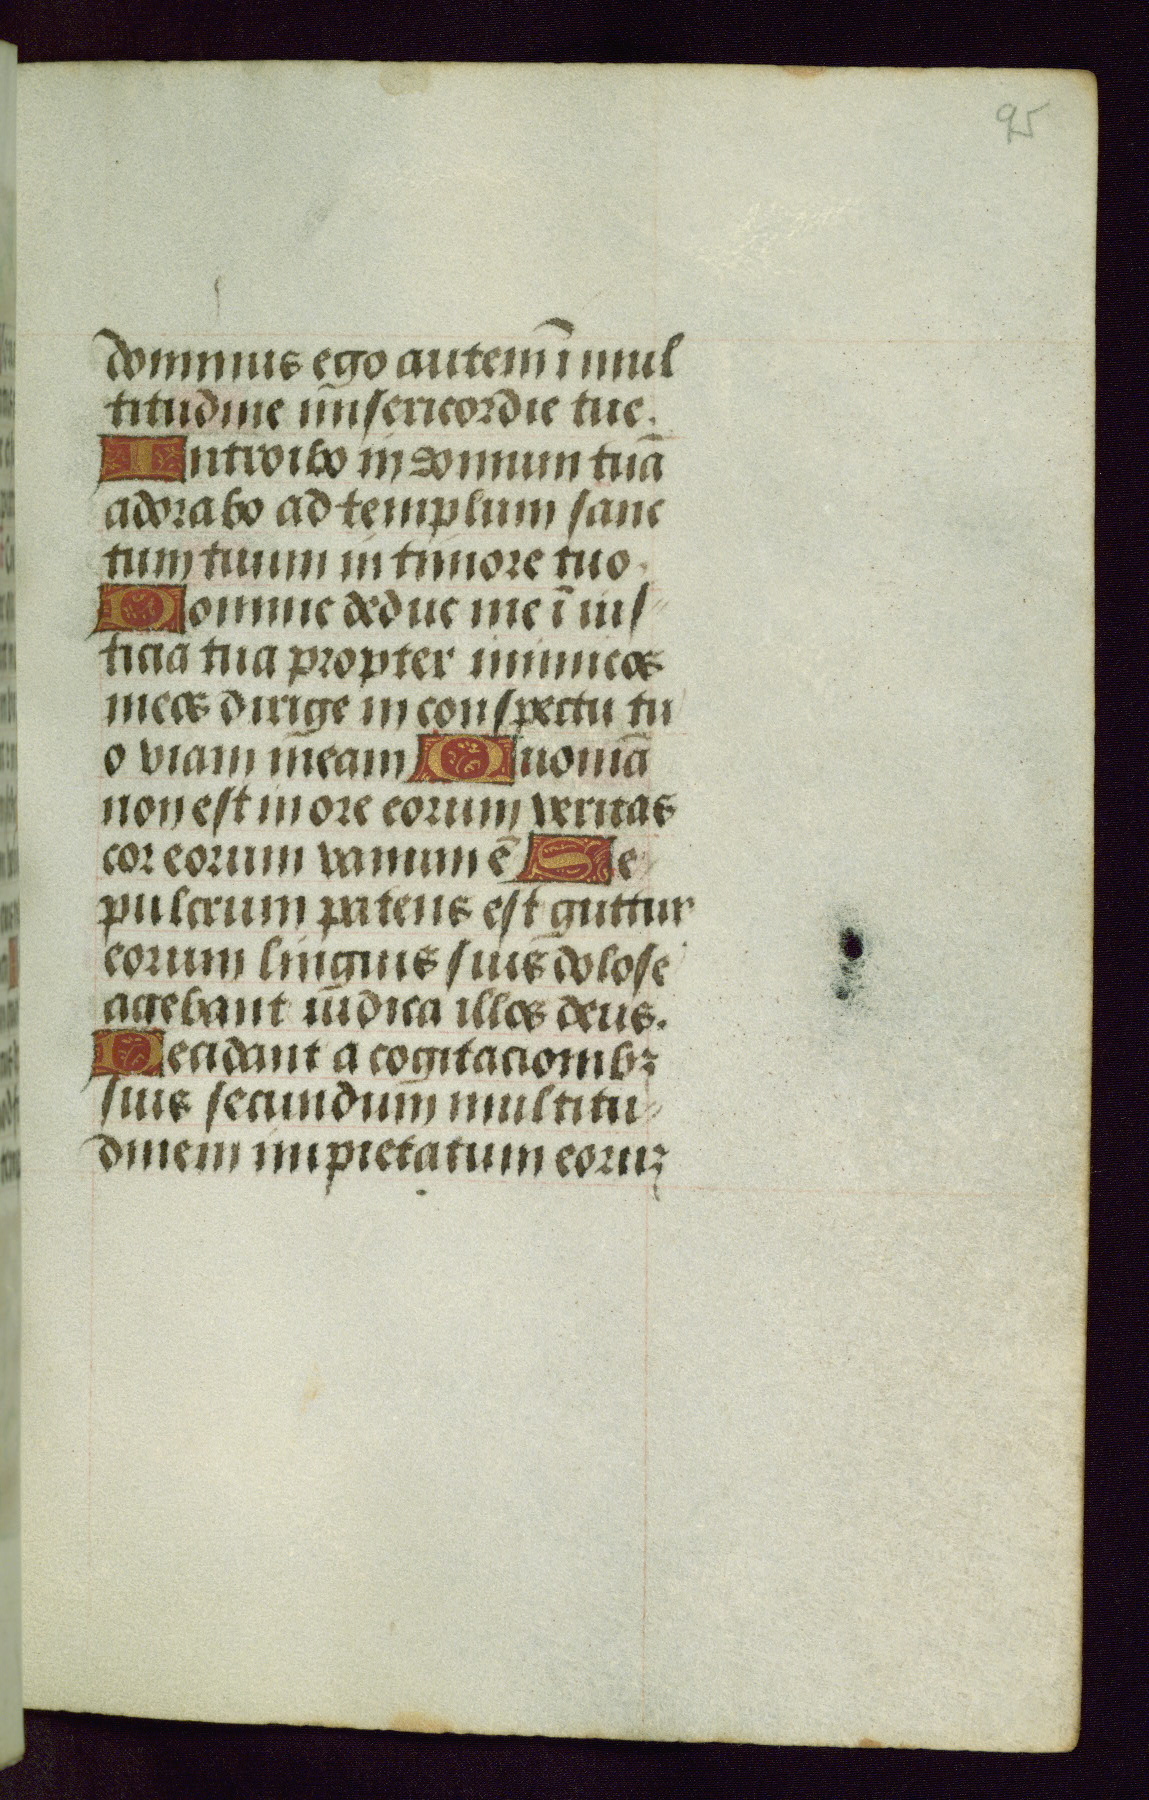 95
dominus ego autem ī mul
titudine misericordie tue.
Introibo in domum tuā
adorabo ad templum sanc
tum tuum in timore tuo.
Domine deduc me ī ius
ticia tua propter inimicos
meos dirige in conspectu tu
o viam meam Quoniā
non est in ore eorum veritas
cor eorum vanum ē Se
pulcrum patens est guttur
eorum linguis suis dolose
agebant iudica illos deus.
Decidant a cogitacionibꝫ
suis secundum multitu
dinem impietatum eoruꝫ